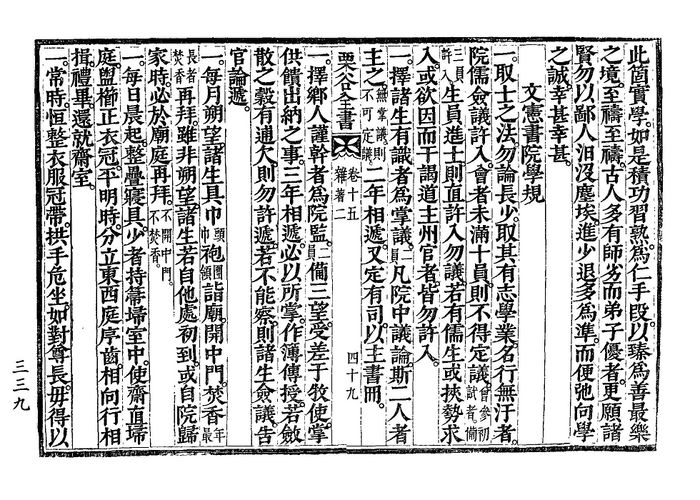 此箇實學。如是積功習熟。爲仁手段。以臻爲善最樂
之境。至禱至禱。古人多有師劣而弟子優者。更願諸
賢勿以鄙人汨沒塵埃。進少退多爲準。而便弛向學
之誠。幸甚幸甚。
文憲書院學規
一。取士之法。勿論長少。取其有志學業。名行無汙者。
院儒僉議許入。會者未滿十員。則不得定議。曾參初試者。備
三員許入。生員進士則直許入勿議。若有儒生或挾勢求
入。或欲因而干謁道主州官者。皆勿許入。
一。擇諸生有識者爲掌議。二員 凡院中議論。斯二人者
主之。無掌議則不可定議。二年相遞。又定有司。以主書冊。
栗谷全書 卷十五 雜著二 四十九
一。擇鄕人謹幹者爲院監。二員 備三望。受差于牧使。掌
供饋出納之事。三年相遞。必以所掌。作簿傳授。若斂
散之穀。有逋欠則勿許遞。若不能察。則諸生僉議。告
官論遞。
一。每月朔望。諸生具巾頭巾袍團領詣廟。開中門。焚香年最
長者焚香。再拜。雖非朔望。諸生若自他處初到。或自院歸
家時。必於廟庭再拜。不開中門。不焚香。
一。每日晨起。整疊寢具。少者持箒埽室中。使齋直埽
庭。盥櫛正衣冠。平明時。分立東西庭。序齒。相向行相
揖禮畢。還就齋室。
一。常時。恒整衣服冠帶。拱手危坐。如對尊長。毋得以
三三九